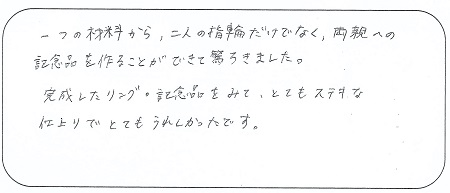 一つの材料から，二人の指輪だけでなく，両親への
記念品を作ることができて驚ろきました。
完成したリング。記念品をみて、とてもステキな
仕上りでとてもうれしかったです。